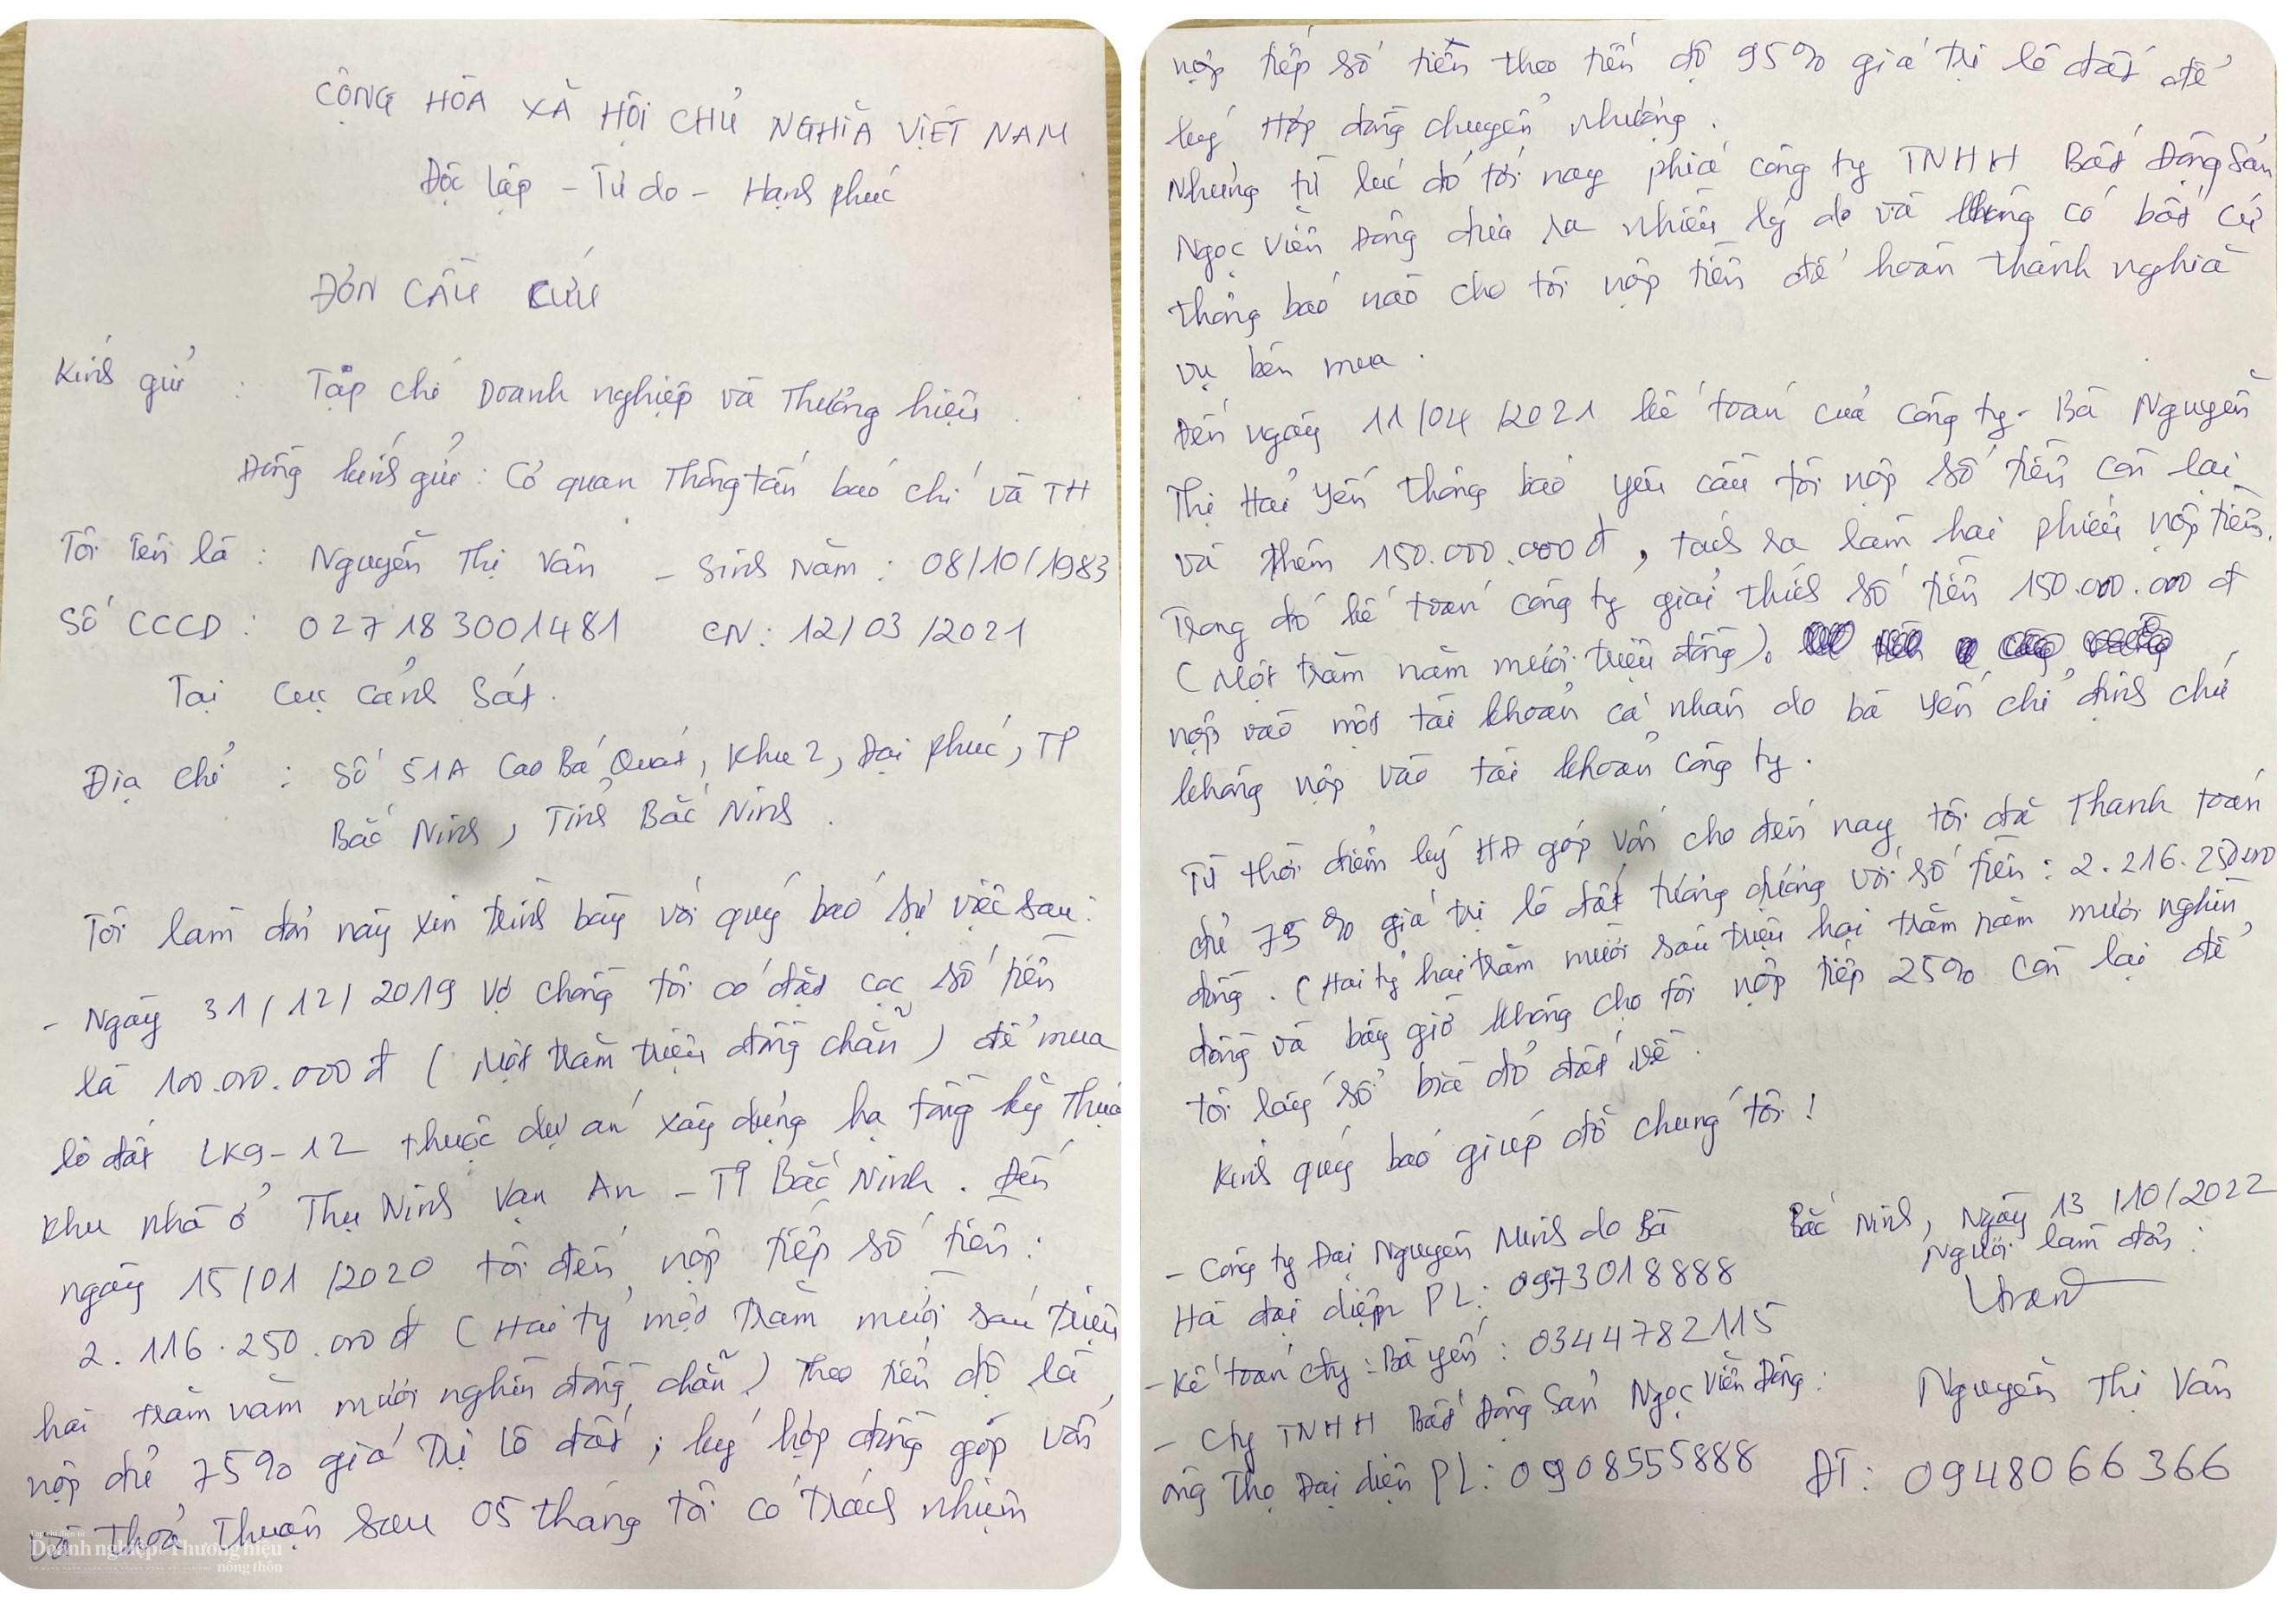 CỘNG HÒA XÃ HỘI CHỦ NGHĨA VIỆT NAM
Độc lập - Tự do - Hạnh phúc
ĐƠN CẦU CỨU
Kính gửi : Tạp chí Doanh nghiệp và Thương hiệu.
Đồng kính gửi : Cơ quan Thông tấn báo chí và TH
Tôi tên là : Nguyễn Thị Vân - Sinh năm : 08/10/1983
Số CCCD : 027183001481 CN : 12/03/2021
Tại Cục Cảnh Sát.
Địa chỉ : Số 51A Cao Bá Quát, Khu 2, Đại Phúc, TP
Bắc Ninh, Tỉnh Bắc Ninh.
Tôi làm đơn này xin trình bày với quý báo sự việc sau :
- Ngày 31/12/2019 vợ chồng tôi có đặt cọc số tiền
là 100.000.000đ (Một trăm triệu đồng chẵn) để mua
lô đất LK9-12 thuộc dự án xây dựng hạ tầng kỹ thuậ
khu nhà ở Thụ Ninh Vạn An - TP Bắc Ninh. Đến
ngày 15/01/2020 tôi đến nộp tiếp số tiền :
2.116.250.000đ (Hai tỷ một trăm mười sáu triệu
hai trăm năm mươi nghìn đồng chẵn) Theo tiến độ là
nộp đủ 75% giá trị lô đất, ký hợp đồng góp vốn
và Thoả Thuận sau 05 tháng tôi có trách nhiệm
Tạp chí điện tử
Doanh nghiệp Thương hiệu
nông thôn
nộp tiếp số tiền theo tiến độ 95% giá trị lô đất để
ký Hợp đồng chuyển nhượng.
Nhưng từ lúc đó tới nay phía công ty TNHH Bất Động Sản
Ngọc Viễn Đông đưa ra nhiều lý do và không có bất cứ
thông báo nào cho tôi nộp tiền để hoàn thành nghĩa
vụ bên mua.
Đến ngày 11/04/2021 kế toán của công ty - Bà Nguyễn
Thị Hải Yến thông báo yêu cầu tôi nộp số tiền còn lại
và thêm 150.000.000đ, tách ra làm hai phiếu nộp tiền.
Trong đó kế toán công ty giải thích số tiền 150.000.000đ
(Một trăm năm mươi triệu đồng).
nộp vào một tài khoản cá nhân do bà Yến chỉ định chứ
không nộp vào tài khoản công ty.
Từ thời điểm ký HĐ góp vốn cho đến nay tôi đã Thanh toán
đủ 75% giá trị lô đất tương đương với số tiền : 2.216.250.000
đồng. (Hai tỷ hai trăm mười sáu triệu hai trăm năm mươi nghìn
đồng và bây giờ không cho tôi nộp tiếp 25% còn lại để
tôi lấy sổ bìa đỏ đất về.
Kính quý báo giúp đỡ chúng tôi !
Bắc Ninh, Ngày 13/10/2022
Người làm đơn :
- Công ty Đại Nguyên Minh do Bà
Hà đại diện PL : 0973018888
- Kế toán cty : Bà Yến : 0344782115
- Cty TNHH Bất Động Sản Ngọc Viễn Đông :
ông Thọ Đại diện PL : 0908555888
Nguyễn Thị Vân
ĐT : 0948066366